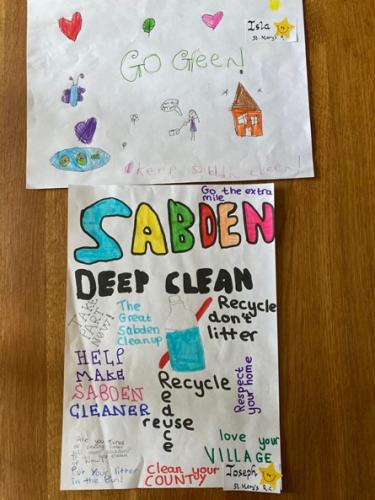 Isla
St. Mary's R.C
Go Green!
keep sabden clean!
Go the extra
mile
SABDEN
DEEP CLEAN
TAKE
PART
NOW!
The
Great
Sabden
Cleanup
Recycle
don't
litter
HELP
MAKE
SABDEN
CLEANER
Recycle
Reduce
reuse
Respect
your home
love your
VILLAGE
Are you tired
Put Your litter
in the bin!
Clean your
COUNTRY
Joseph
St. Mary's R.C